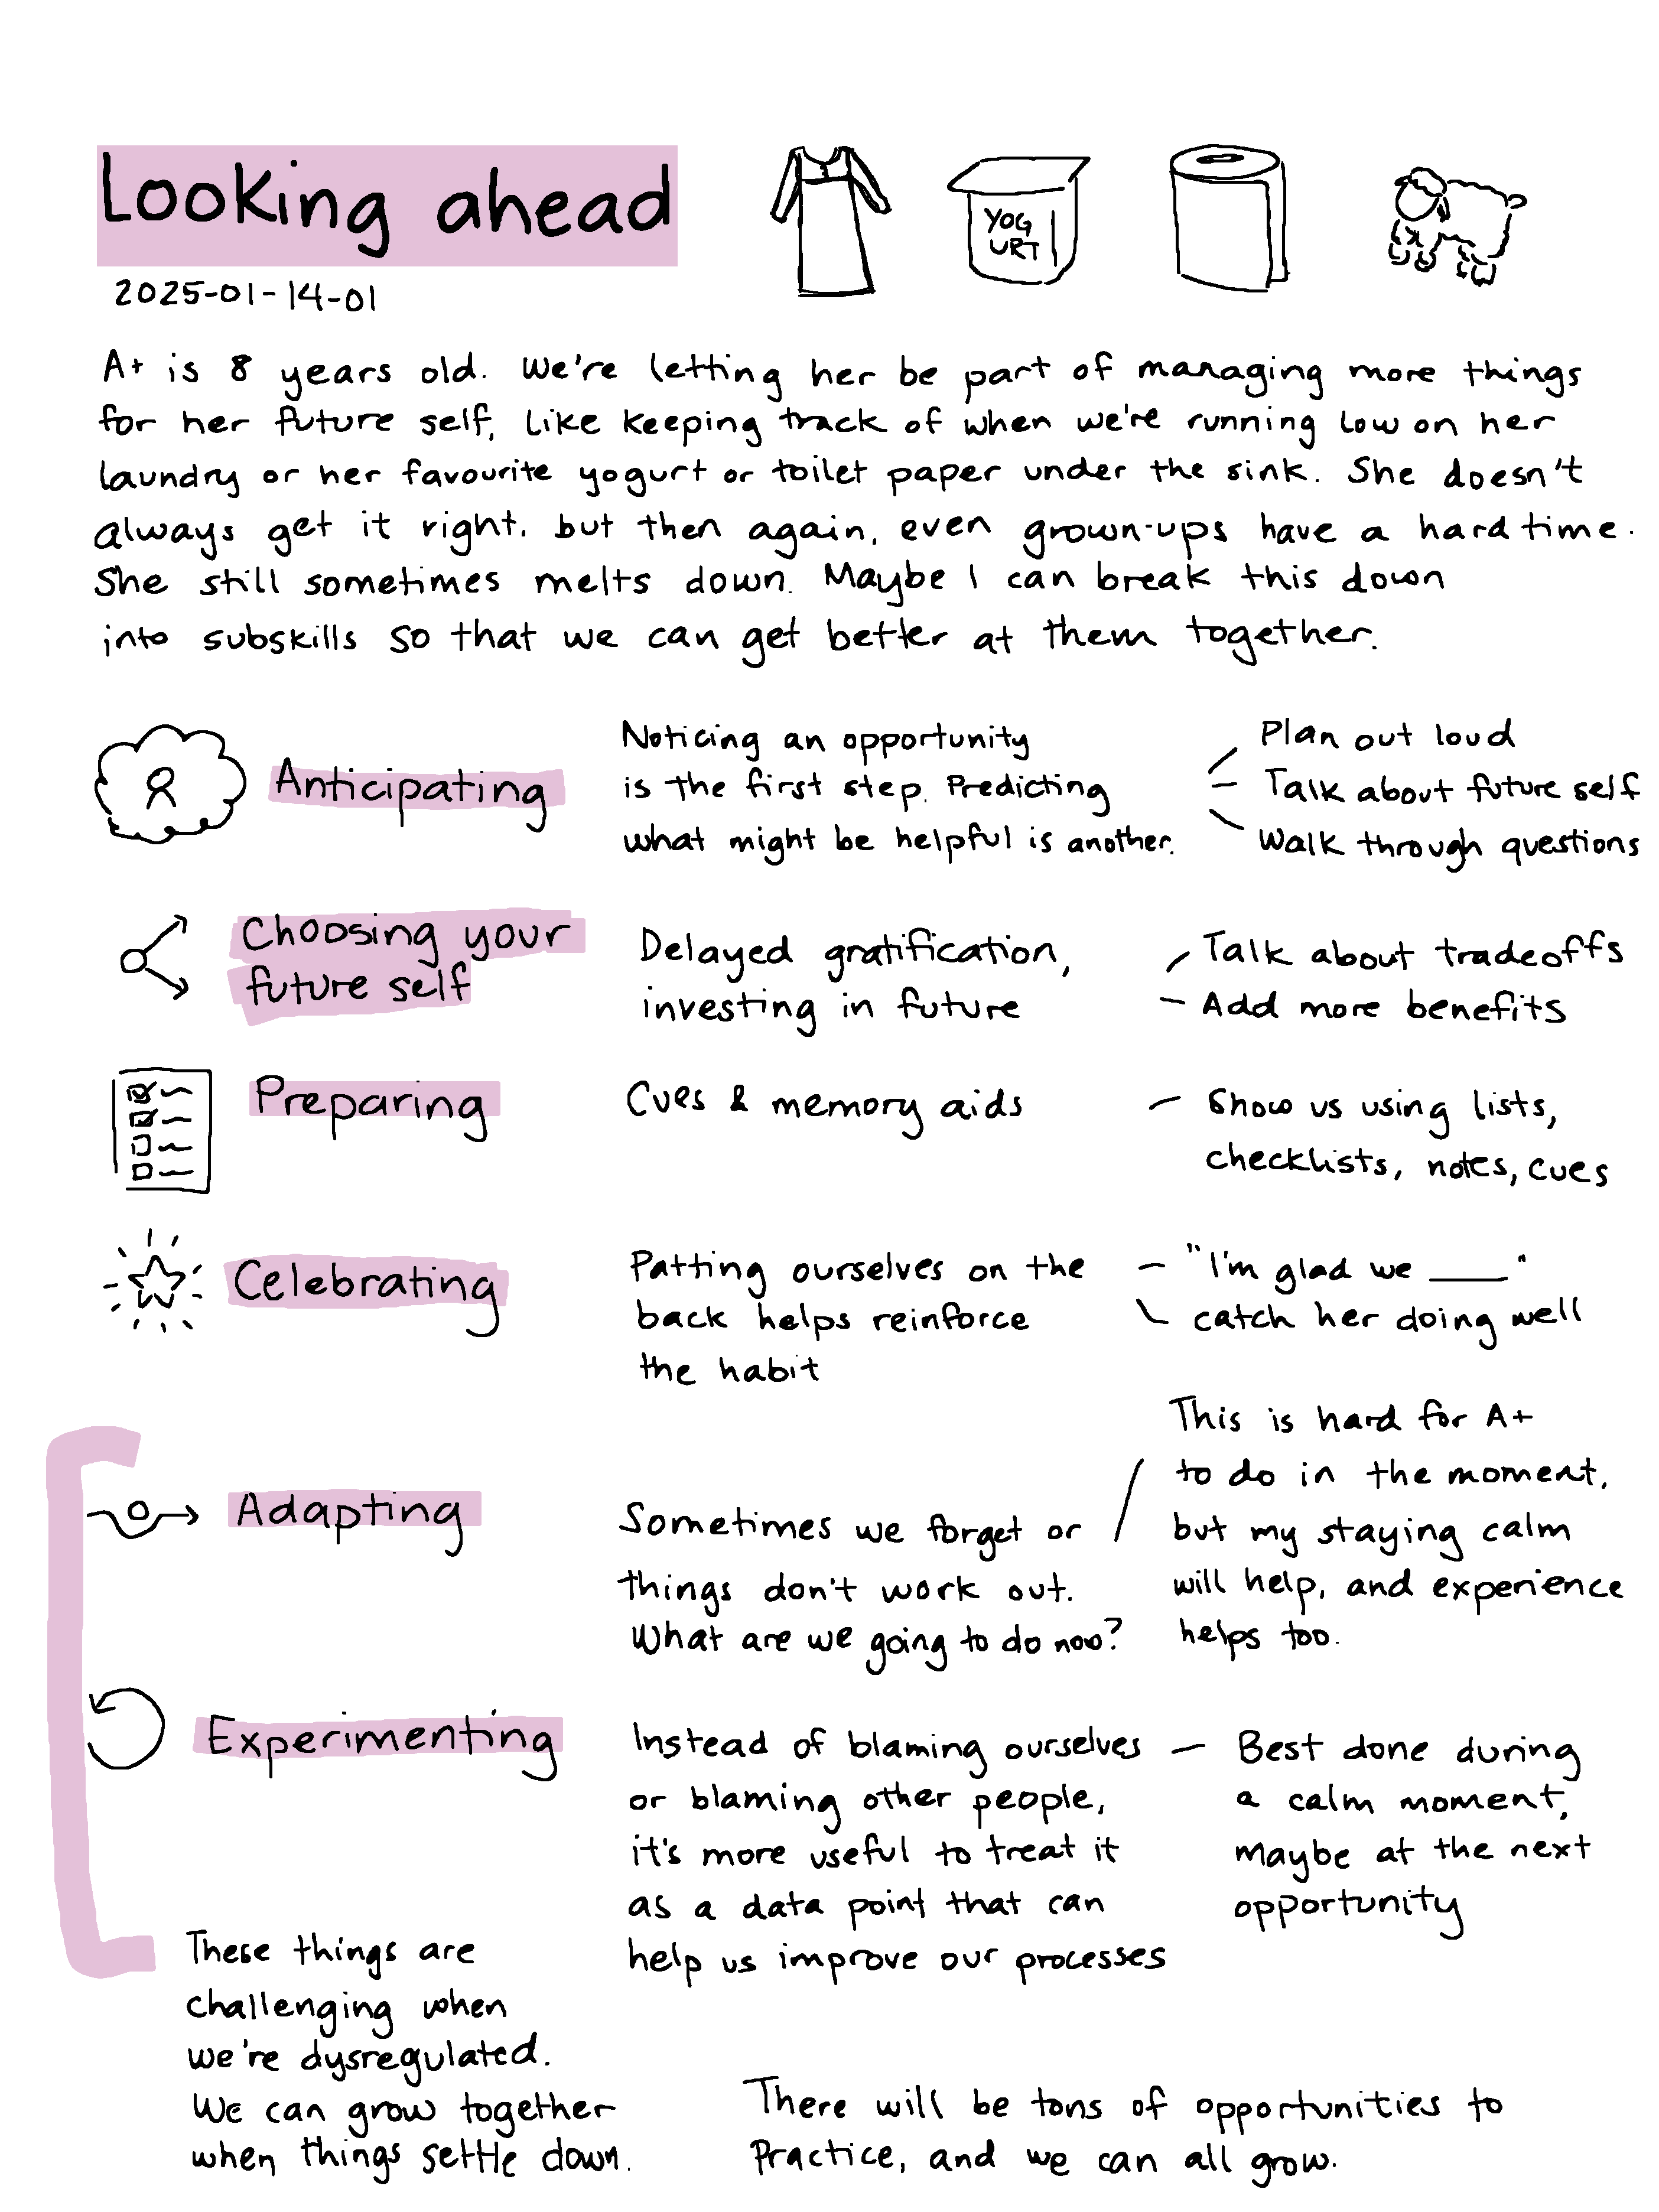 Looking ahead
YOG
URT
2025-01-14-01
A+ is 8 years old. We're letting her be part of managing more things
for her future self, like keeping track of when we're running low on her
laundry or her favourite yogurt or toilet paper under the sink. She doesn't
always get it right, but then again, even grown-ups have a hard time.
She still sometimes melts down. Maybe I can break this down
into subskills so that we can get better at them together.
Anticipating
Noticing an opportunity
is the first step. Predicting
what might be helpful is another.
- Plan out loud
- Talk about future self
- Walk through questions
Choosing your
future self
Delayed gratification,
investing in future
- Talk about tradeoffs
- Add more benefits
Preparing
Cues & memory aids
- Show us using lists,
checklists, notes, cues
Celebrating
Patting ourselves on the
back helps reinforce
the habit
- "I'm glad we ____"
- catch her doing well
Adapting
Sometimes we forget or
things don't work out.
What are we going to do now?
This is hard for A+
to do in the moment,
but my staying calm
will help, and experience
helps too.
Experimenting
Instead of blaming ourselves
or blaming other people,
it's more useful to treat it
as a data point that can
help us improve our processes
- Best done during
a calm moment,
maybe at the next
opportunity
These things are
challenging when
we're dysregulated.
We can grow together
when things settle down.
There will be tons of opportunities to
practice, and we can all grow.